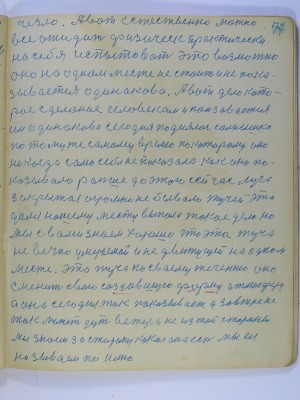 чезло. А вот Естественно можно
все ожидат физическ практически
на себя испытоват это возможно
оно на одном месте не стоит и не пока-
зывается одинакова. А вот дело кото-
рое сделоное человеком и показавается
им одинаково сегодня поднялос солнышко
по тому же самому время по которому оно
никогда само себя не показала как оно по-
казывало раньше до этого сейчас туча
закрыла огромно не бывало туча эта
дала нашему месту такое дело но
мы с вами знаем хорошо что эта туча
не вечно и не движущей на одном
месте. Эта туча по своему течению оно
сменит свою создавшую форму
а оно сегодня так показывает а завтра не
так может дут ветер и не из той стороны
мы знаем за сторону какая она ест мы ей
называем по